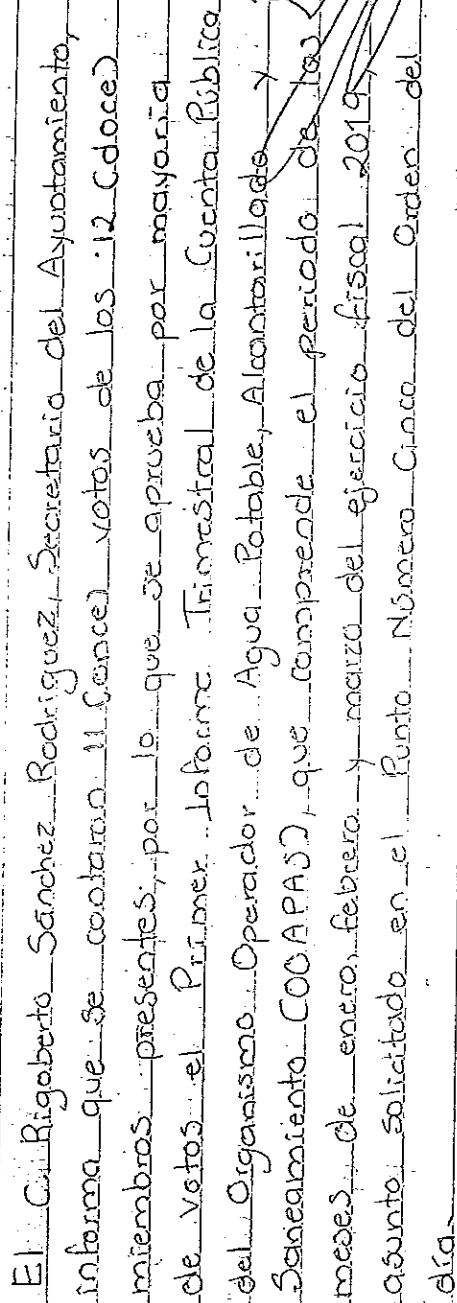 El C. Rigoberto Sánchez Rodríguez, Secretario del Ayuntamiento,
informa que se contaron 11 (once) votos de los 12 (doce)
miembros presentes; por lo que se aprueba por mayoria
de votos el Primer Informe Trimestral de la Cuenta Pública
del Organismo Operador de Agua Potable, Alcantarillado y
Saneamiento (OOAPAS), que comprende el periodo de los
meses de enero, febrero y marzo del ejercicio fiscal 2019,
asunto solicitado en el Punto Número Cinco del Orden del
día.